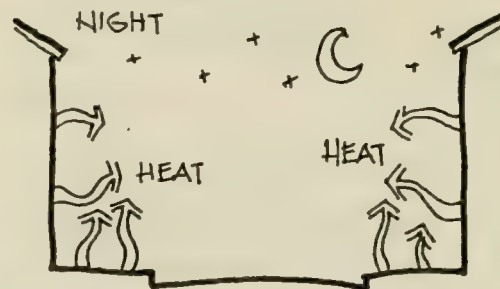 NIGHT
HEAT
HEAT